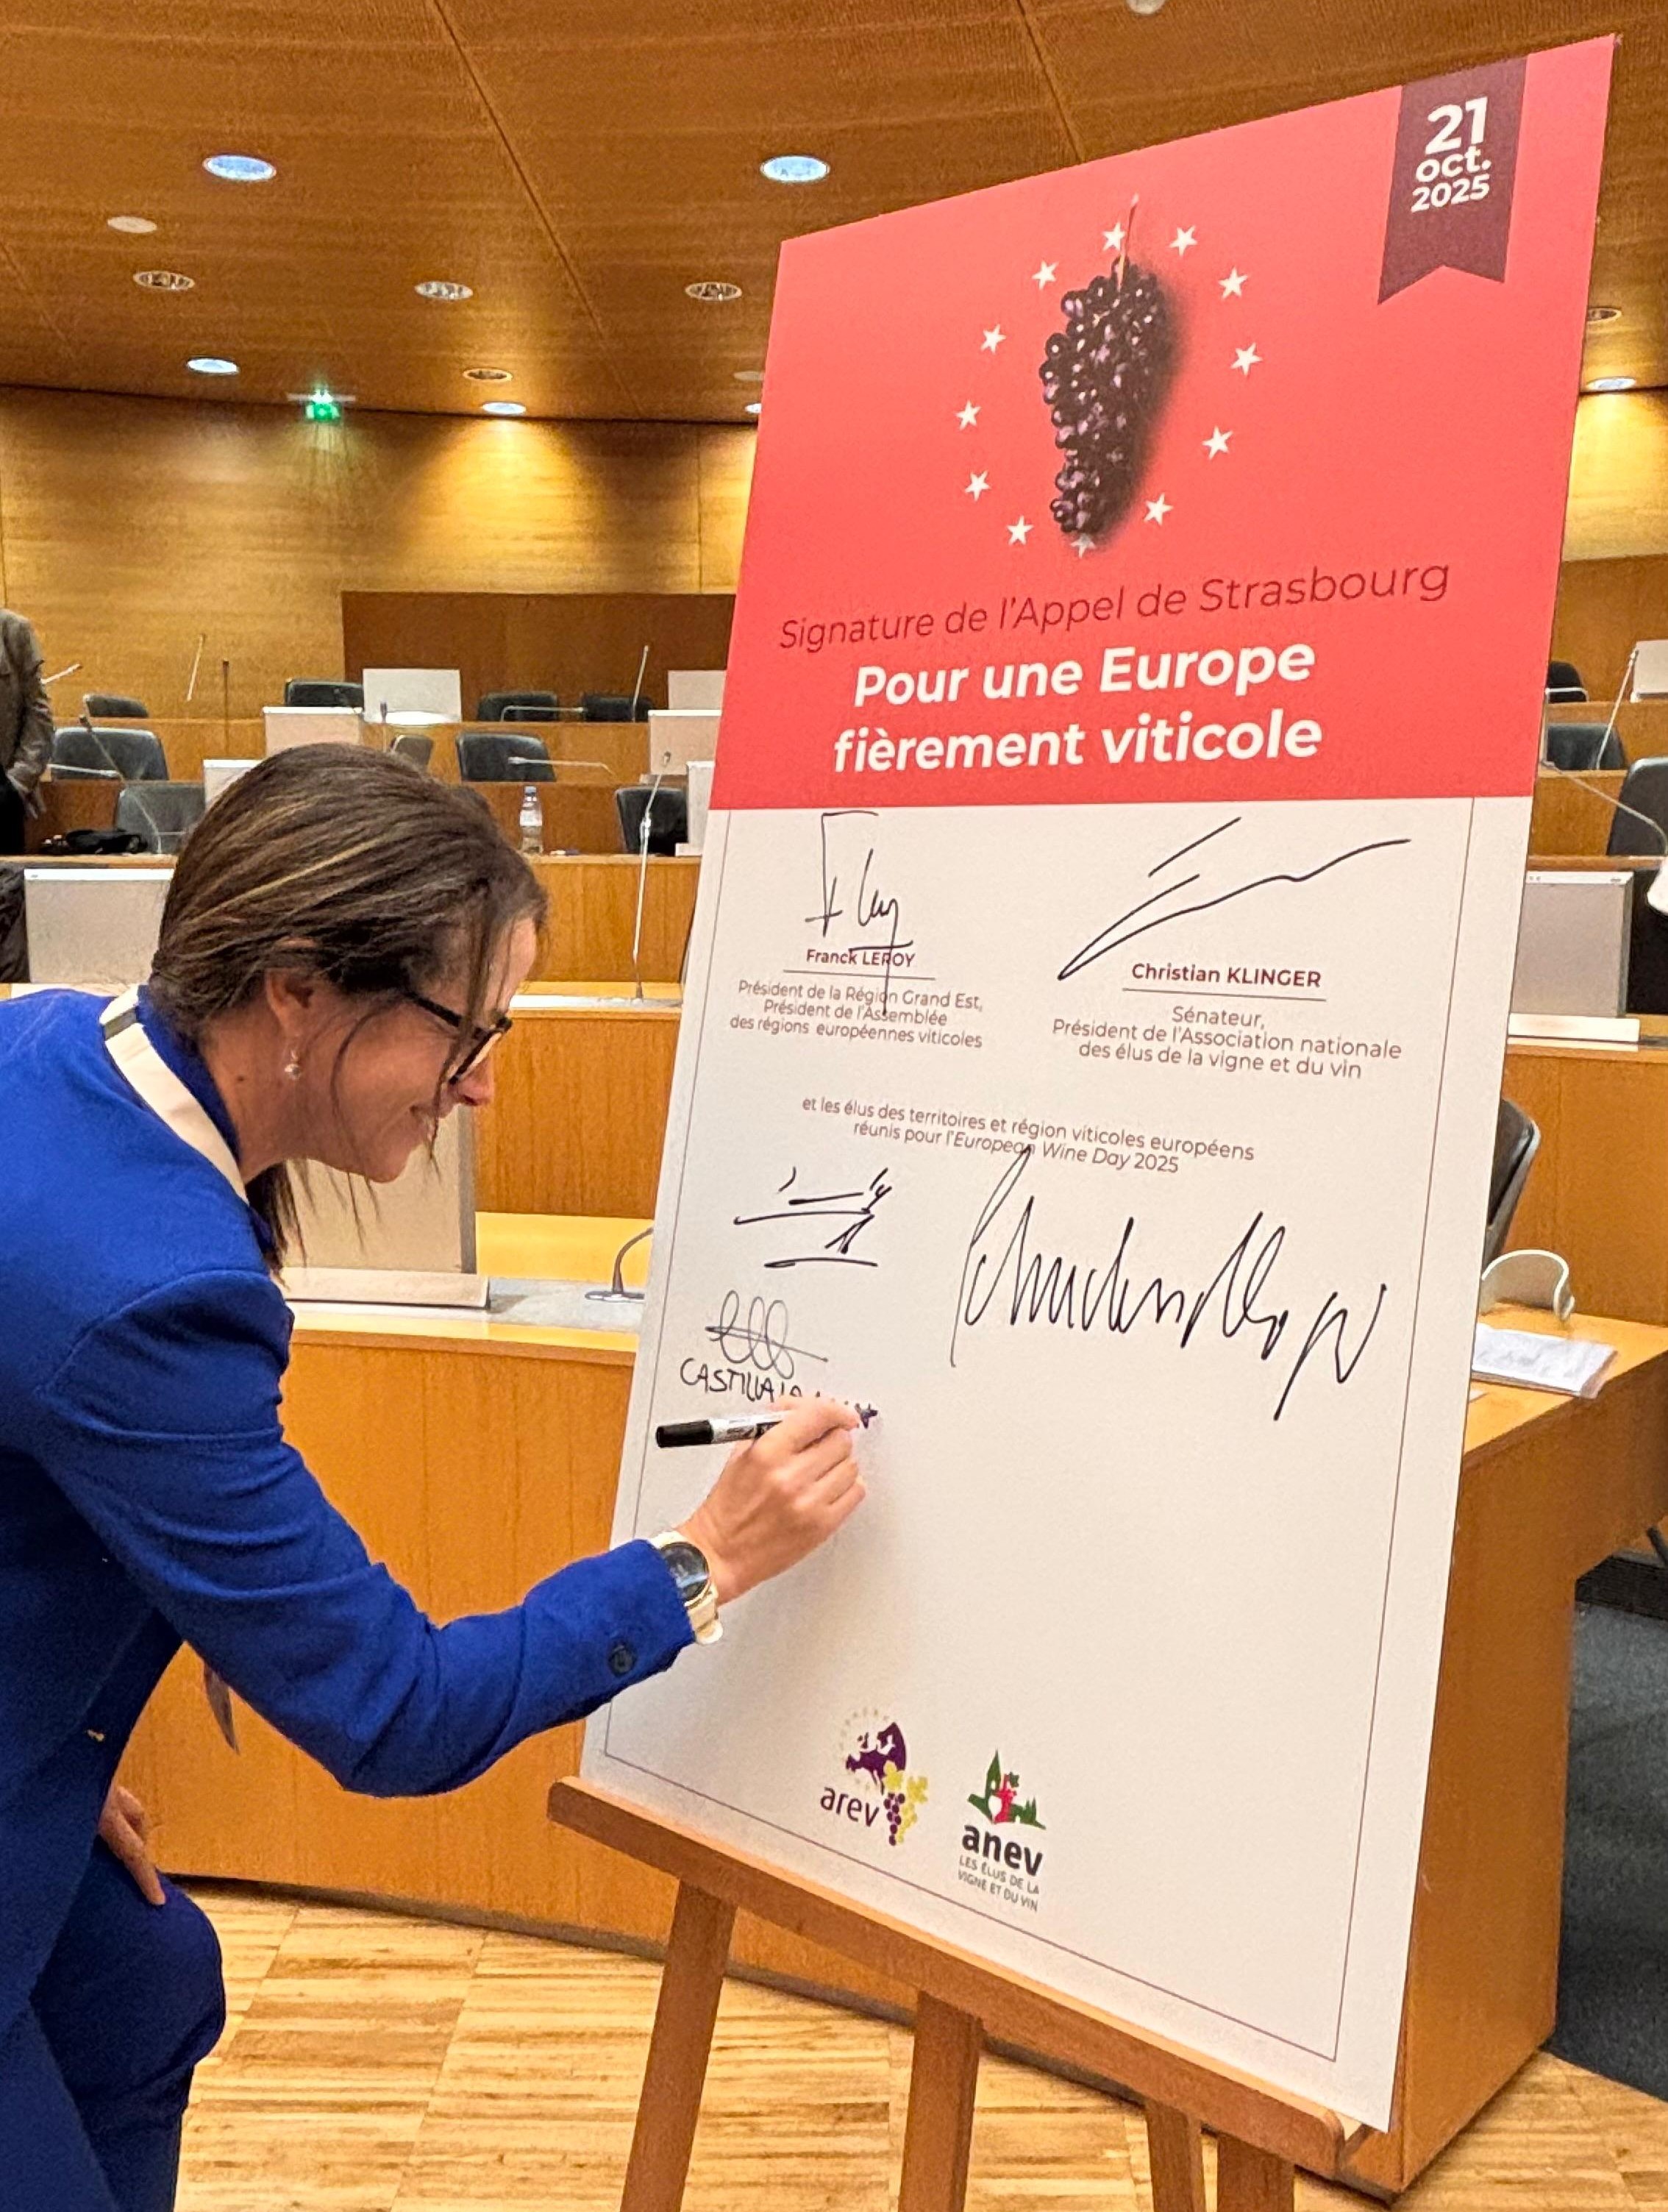 21
oct.
2025
Signature de l'Appel de Strasbourg
Pour une Europe
fièrement viticole
Franck LEROY
Président de la Région Grand Est,
Président de l'Assemblée
des régions européennes viticoles
Christian KLINGER
Sénateur,
Président de l'Association nationale
des élus de la vigne et du vin
et les élus des territoires et région viticoles européens
réunis pour l'European Wine Day 2025
CASTILLA LA
arev
anev
LES ÉLUS DE LA
VIGNE ET DU VIN